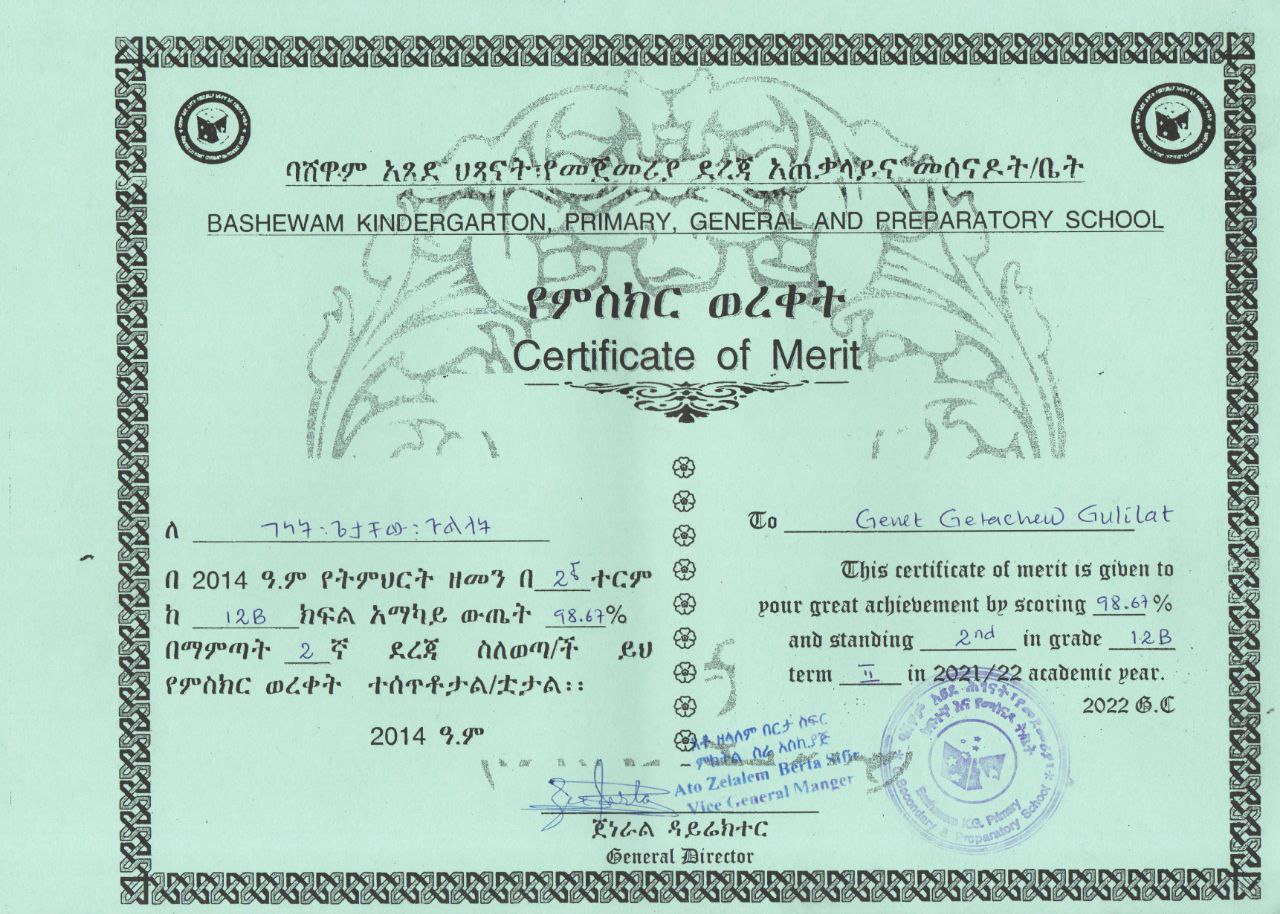 ባሸዋም አጸደ ህጻናት፡የመጀመሪያ ደረጃ አጠቃላይና መሰናዶት/ቤት
BASHEWAM KINDERGARTON, PRIMARY, GENERAL AND PREPARATORY SCHOOL
የምስክር ወረቀት
Certificate of Merit
ለ ገነት፡ጌታቸው፡ጉልላት
በ 2014 ዓ.ም የትምህርት ዘመን በ 2ኛ ተርም
ከ 12B ክፍል አማካይ ውጤት 98.67%
በማምጣት 2 ኛ ደረጃ ስለወጣ/ች ይህ
የምስክር ወረቀት ተሰጥቶታል/ቷታል፡፡
2014 ዓ.ም
To Genet Getachew Gulilat
This certificate of merit is given to
your great achievement by scoring 98.67%
and standing 2nd in grade 12B
term II in 2021/22 academic year.
2022 G.C
አቶ ዘላለም በርታ ስፍር
ምክትል ስራ አስኪያጅ
Ato Zelalem Berta Sifir
Vice General Manger
ጀነራል ዳይሬክተር
General Director
Bashewam K.G. Primary
Secondary & Preparatory School